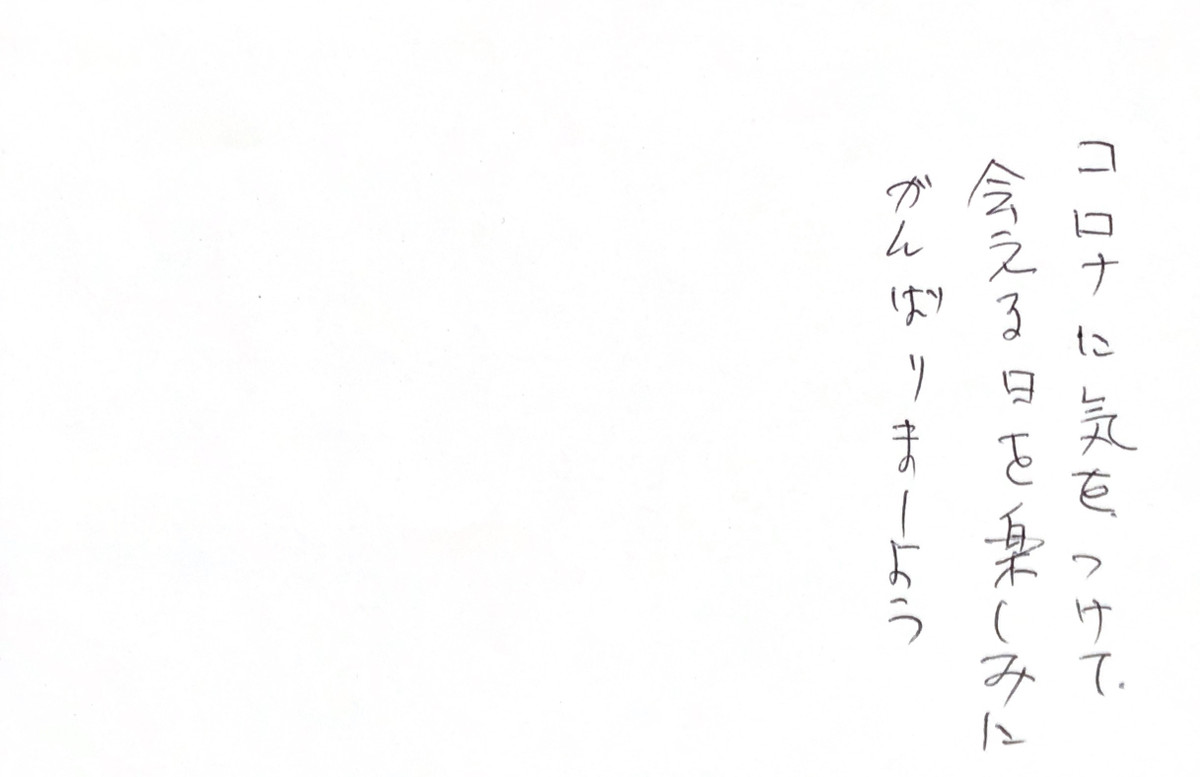 コロナに気をつけて.
会える日を楽しみに
がんばりましょう